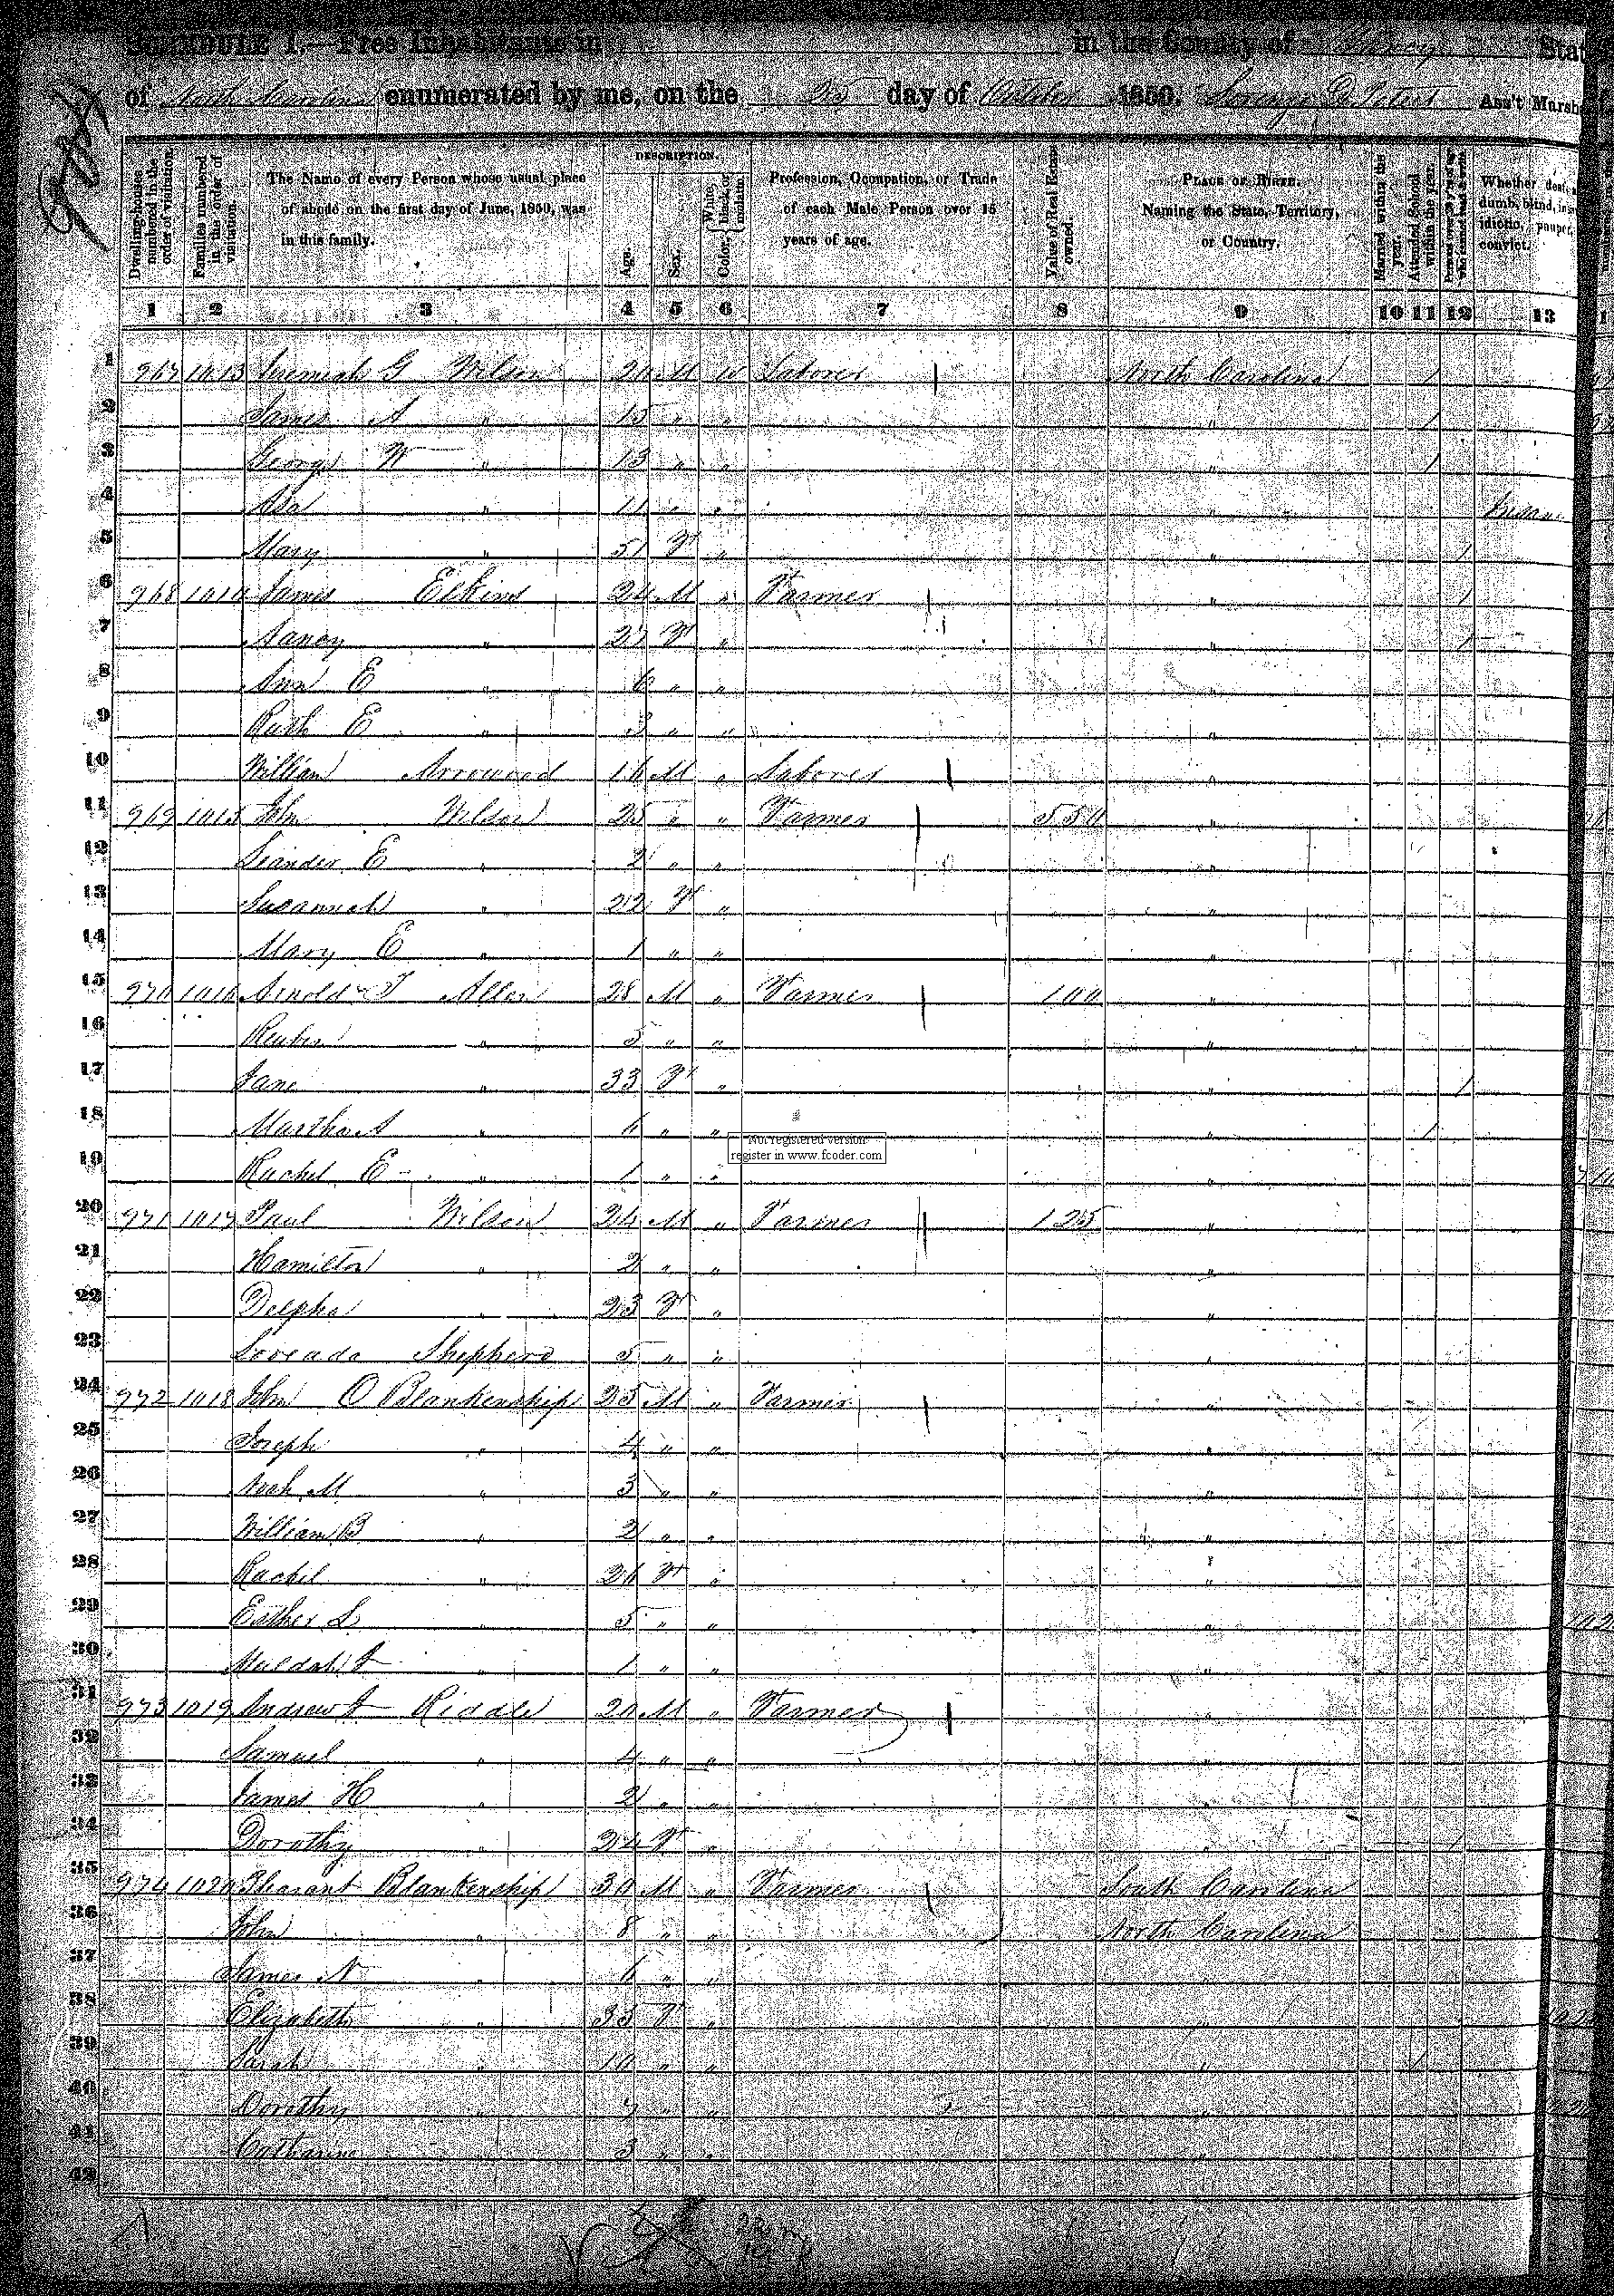 SCHEDULE I.—Free Inhabitants in in the County of Yancy State
of North Carolina enumerated by me, on the 25 day of October 1850. Lorenzo D Peters Ass't Marsh
Dwelling-houses numbered in the order of visitation.
Families numbered in the order of visitation.
The Name of every Person whose usual place of abode on the first day of June, 1850, was in this family.
DESCRIPTION.
Age.
Sex.
Color, White, black, or mulatto.
Profession, Occupation, or Trade of each Male Person over 15 years of age.
Value of Real Estate owned.
PLACE OF BIRTH. Naming the State, Territory, or Country.
Married within the year.
Attended School within the year.
Persons over 20 y'rs of age who cannot read & write
Whether deaf, dumb, blind, idiotic, pauper, convict.
1 2 3 4 5 6 7 8 9 10 11 12 13
1 967 1013 Jeremiah G Wilson 20 M W Laborer North Carolina 1
2 James A " 15 " " " 1
3 George W " 13 " " " 1
4 Asa " 11 " " "
5 Mary " 51 F " " 1
6 968 1014 James Elkins 24 M " Farmer " 1
7 Nancy " 27 F " " 1
8 Ann E " 6 " "
9 Ruth E " 3 " " "
10 William Arrowood 16 M " Laborer "
11 969 1015 John Wilson 25 " " Farmer 550 "
12 Leander E " 2 " " "
13 Susannah " 22 F " "
14 Mary E " 1 " " "
15 970 1016 Arnold T Allen 28 M " Farmer 100 "
16 Reuben " 5 " " "
17 Jane " 33 F " " 1
18 Martha A " 6 " " " 1
Not registered version
register in www.fcoder.com
19 Rachel E " 1 " " "
20 971 1017 Paul Wilson 24 M " Farmer 125 "
21 Hamilton " 2 " " "
22 Delpha " 23 F " "
23 Shepherd 5 " " "
24 972 1018 John O Blankenship 25 M " Farmer "
25 Joseph " 4 " " "
26 M " 3 " " "
27 William B " 2 " " "
28 Rachel " 26 F " "
29 Esther L " 5 " " "
30 " 1 " " "
31 973 1019 Andrew J Riddle 20 M " Farmer "
32 Samuel " 4 " " "
33 James H " 2 " " "
34 Dorothy " 24 F " " 1
35 974 1020 Pleasant Blankenship 30 M " Farmer South Carolina
36 John " 8 " " North Carolina
37 James N " 6 " " "
38 Elizabeth " 35 F " "
39 Sarah " 10 " " " 1
40 Dorothy " 7 " " "
41 Catharine 3 " " "
42